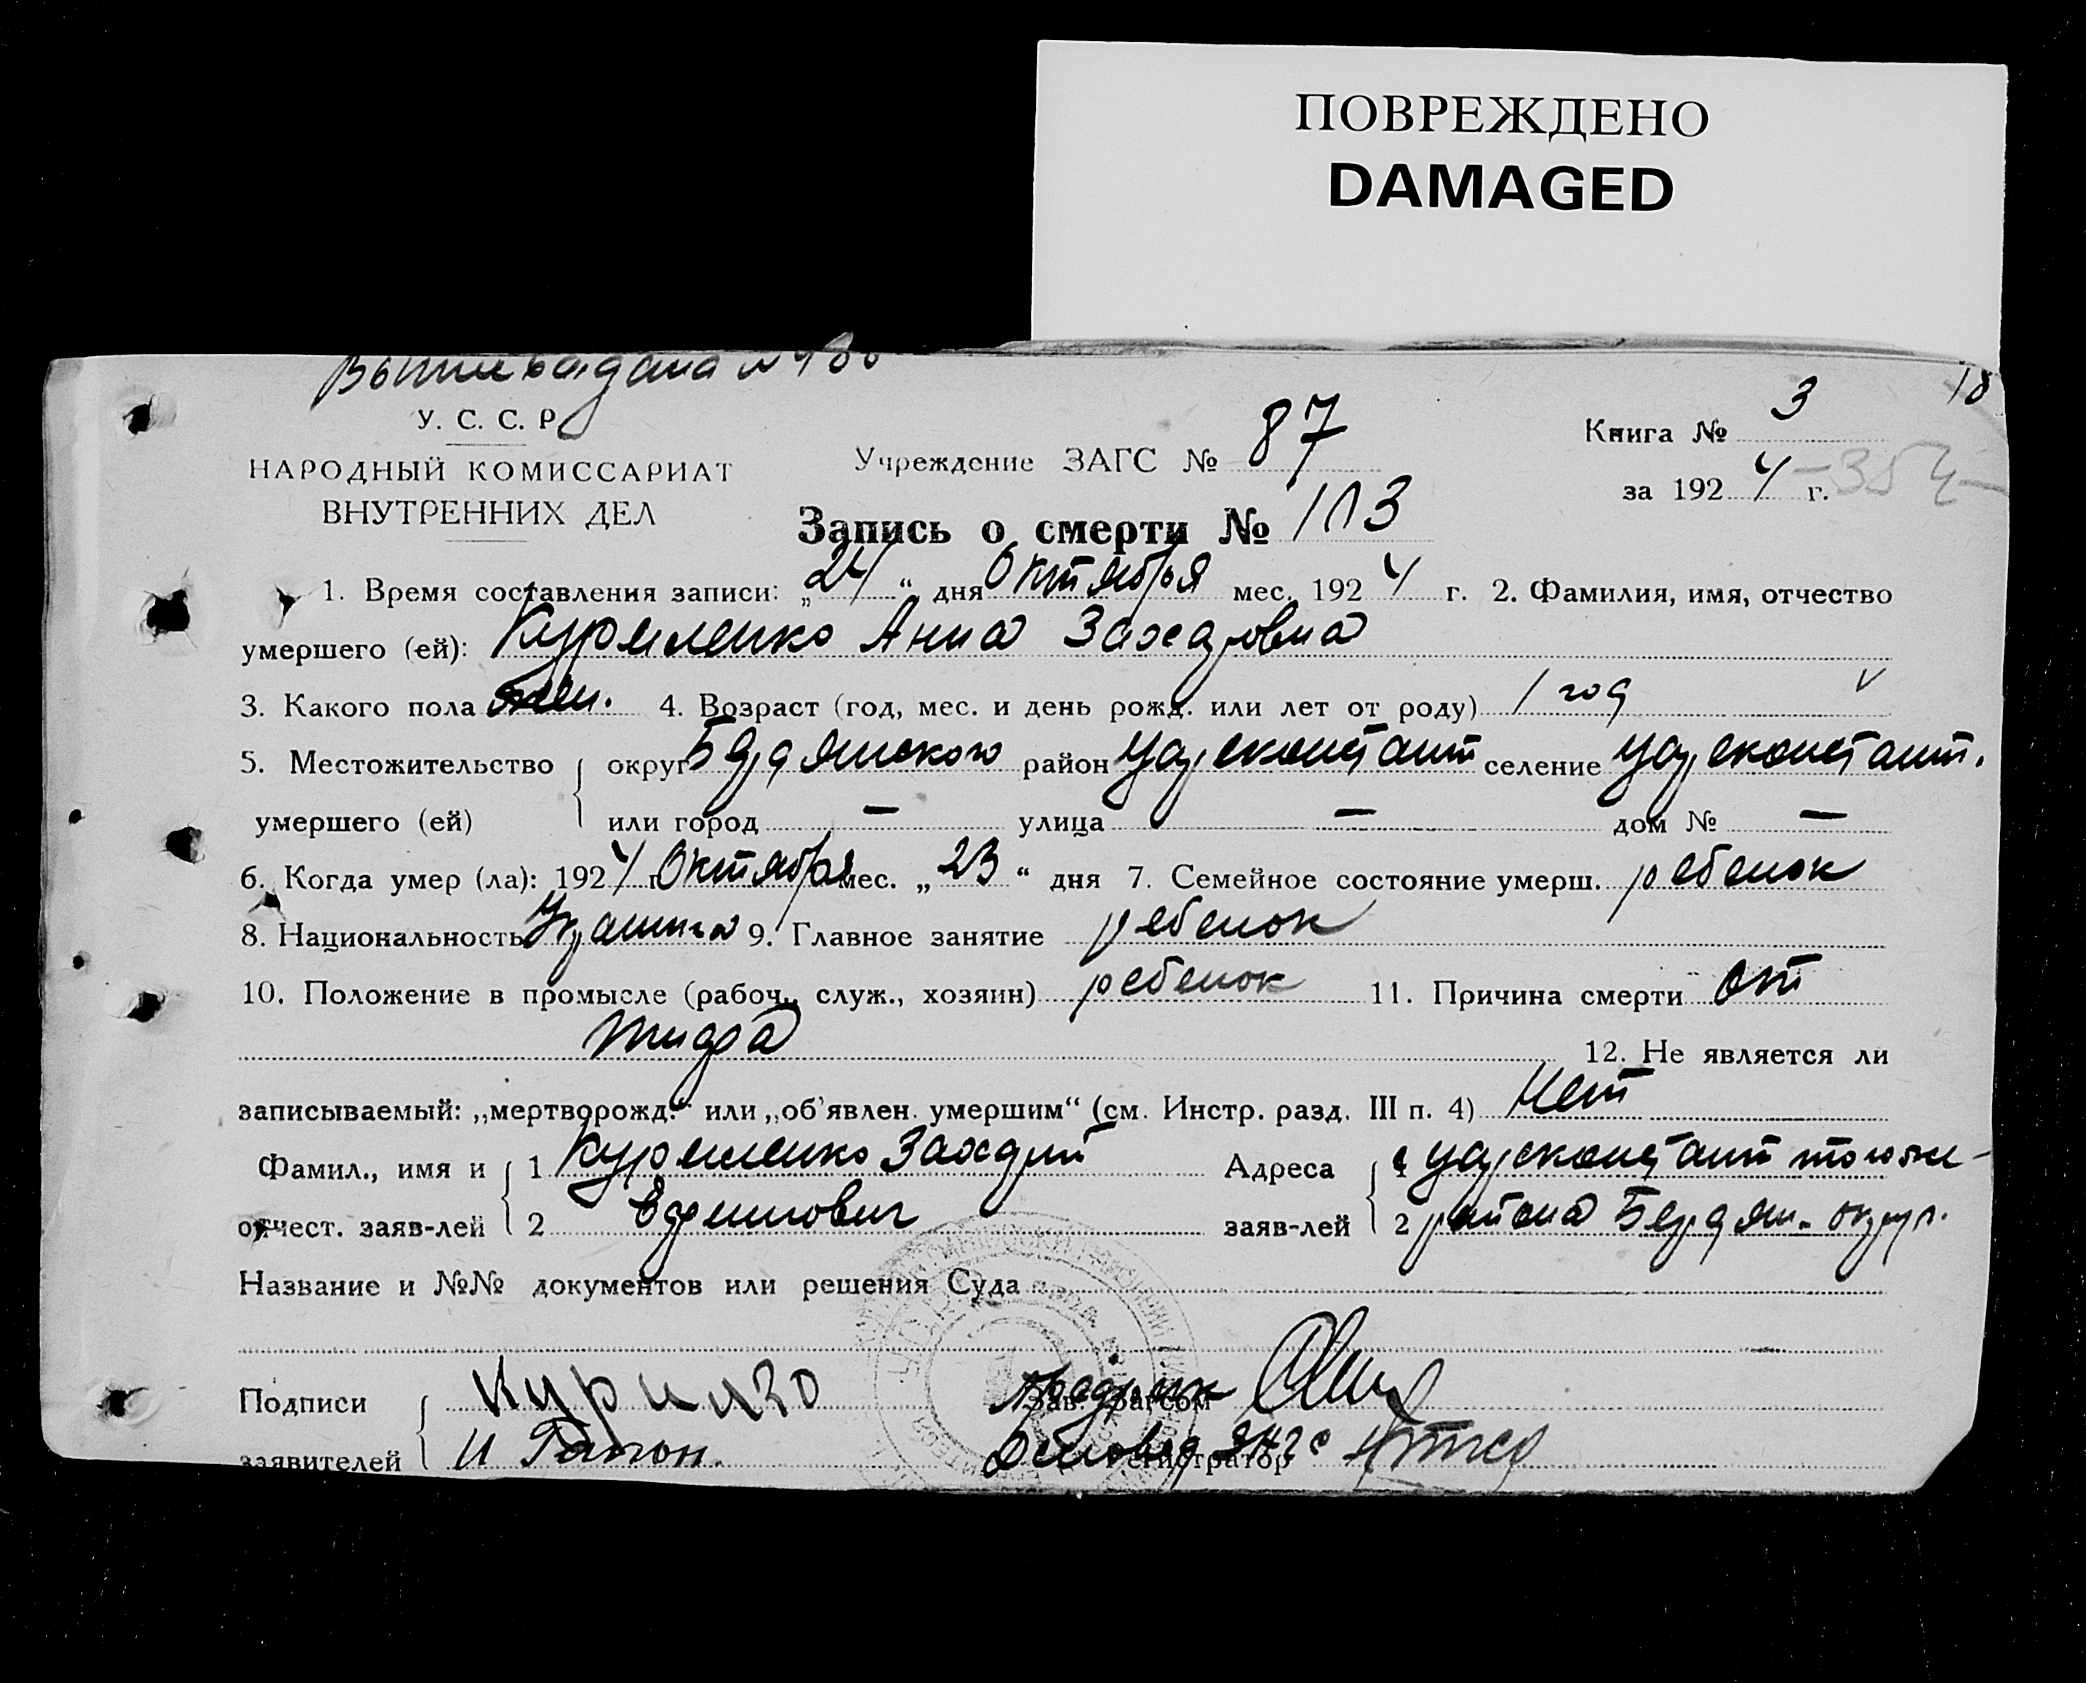 ПОВРЕЖДЕНО
DAMAGED
18
У. С. С. Р
НАРОДНЫЙ КОМИССАРИАТ
ВНУТРЕННИХ ДЕЛ
Учреждение ЗАГС № 87
Книга № 3
за 1924 г.
Запись о смерти № 113
1. Время составления записи: „24“ дня Октября мес. 1924 г. 2. Фамилия, имя, отчество
умершего (ей): Куриленко Анна Захаровна
3. Какого пола жен. 4. Возраст (год, мес. и день рожд. или лет от роду) 1 год
5. Местожительство округ Бердянского район Царсконстант селение Царсконстант.
умершего (ей) или город — улица — дом № —
6. Когда умер (ла): 1924 г Октября мес. „23“ дня 7. Семейное состояние умерш. ребенок
8. Национальность 9. Главное занятие ребенок
10. Положение в промысле (рабоч., служ., хозяин) ребенок 11. Причина смерти от
тифа 12. Не является ли
записываемый: „мертворожд.“ или „об'явлен. умершим“ (см. Инстр. разд. III п. 4) Нет
Фамил., имя и 1 Куриленко Захарий Адреса 1 Царсконстант того же
отчест. заяв-лей 2 Ефимович заяв-лей 2 района Бердян. округ.
Название и №№ документов или решения Суда
Подписи Зав. Загсом
заявителей Регистратор